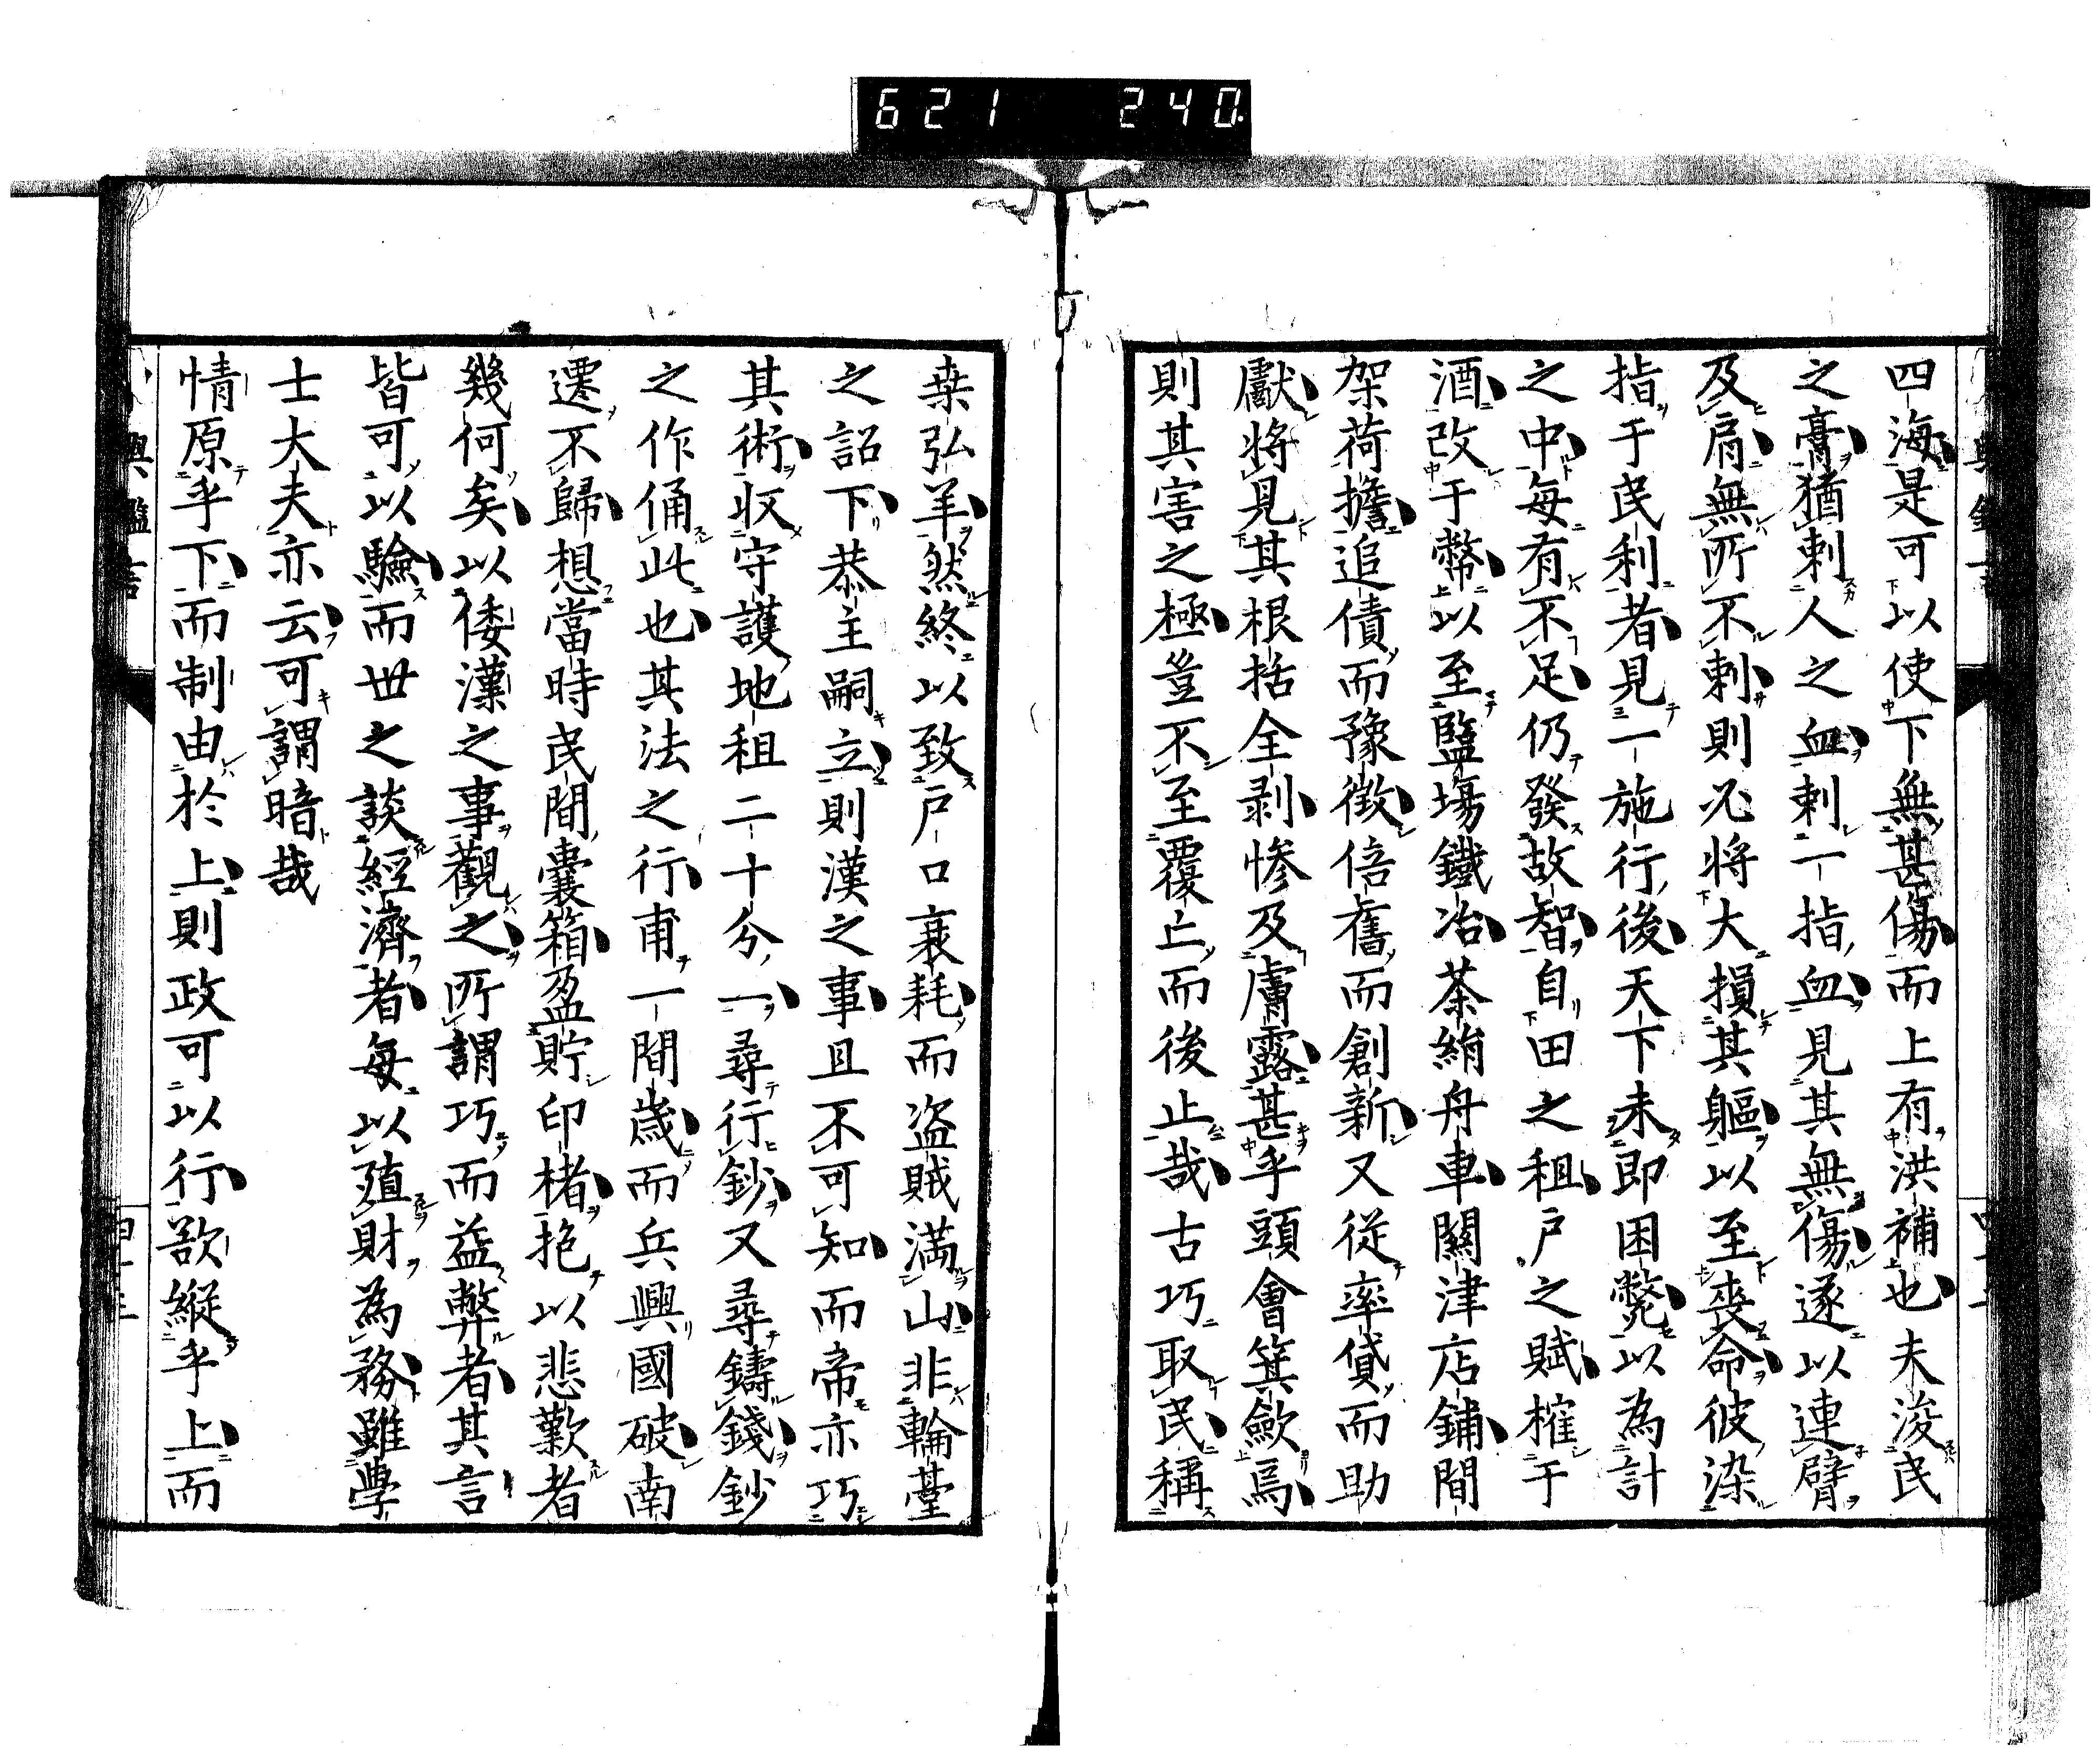 621 240
四海是可以使下無甚傷而上有洪補也夫浚民
之膏猶刺人之血刺一指血見其無傷遂以連臂
及肩無所不刺則必將大損其軀以至喪命彼染
指于民利者見一施行後天下未即困斃以為計
之中每有不足仍發故智自田之租戶之賦榷于
酒改于幣以至鹽場鐵冶茶絹舟車關津店鋪間
架荷擔追債而豫徵倍舊而創新又従率貸而助
獻將見其根括全剥慘及膚露甚乎頭會箕歛焉
則其害之極豈不至覆亡而後止哉古巧取民稱
桒弘羊然終以致戶口衰耗而盗賊満山非輪臺
之詔下恭主嗣立則漢之事且不可知而帝亦巧
其術収守護地租二十分一尋行鈔又尋鑄錢鈔
之作俑此也其法之行甫一間歳而兵興國破南
遷不歸想當時民間囊箱盈貯印楮抱以悲歎者
幾何矣以倭漢之事觀之所謂巧而益弊者其言
皆可以驗而世之談經濟者每以殖財為務雖學
士大夫亦云可謂暗哉
情原乎下而制由於上則政可以行欲縦乎上而